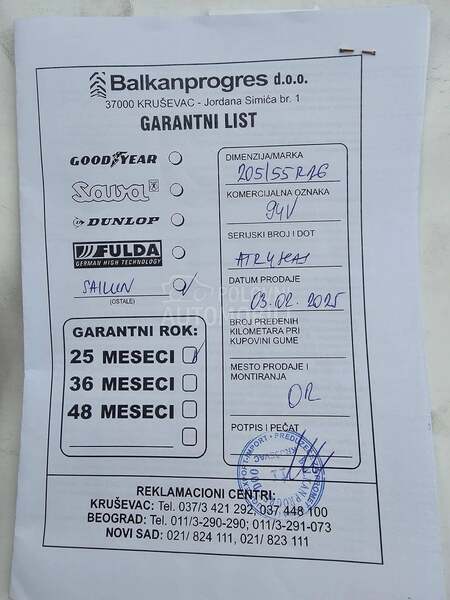 Balkanprogres d.o.o.
37000 KRUŠEVAC - Jordana Simića br. 1
GARANTNI LIST
GOODYEAR
Sava
DUNLOP
FULDA
GERMAN HIGH TECHNOLOGY
SAILUN
(OSTALE)
GARANTNI ROK:
25 MESECI
36 MESECI
48 MESECI
DIMENZIJA/MARKA
205/55 R16
KOMERCIJALNA OZNAKA
94V
SERIJSKI BROJ I DOT
DATUM PRODAJE
03.02.2025
BROJ PREĐENIH
KILOMETARA PRI
KUPOVINI GUME
MESTO PRODAJE I
MONTIRANJA
OR
POTPIS I PEČAT
REKLAMACIONI CENTRI:
KRUŠEVAC: Tel. 037/3 421 292; 037 448 100
BEOGRAD: Tel. 011/3-290-290; 011/3-291-073
NOVI SAD: 021/ 824 111, 021/ 823 111
POLOVNI
AUTOMOBILI